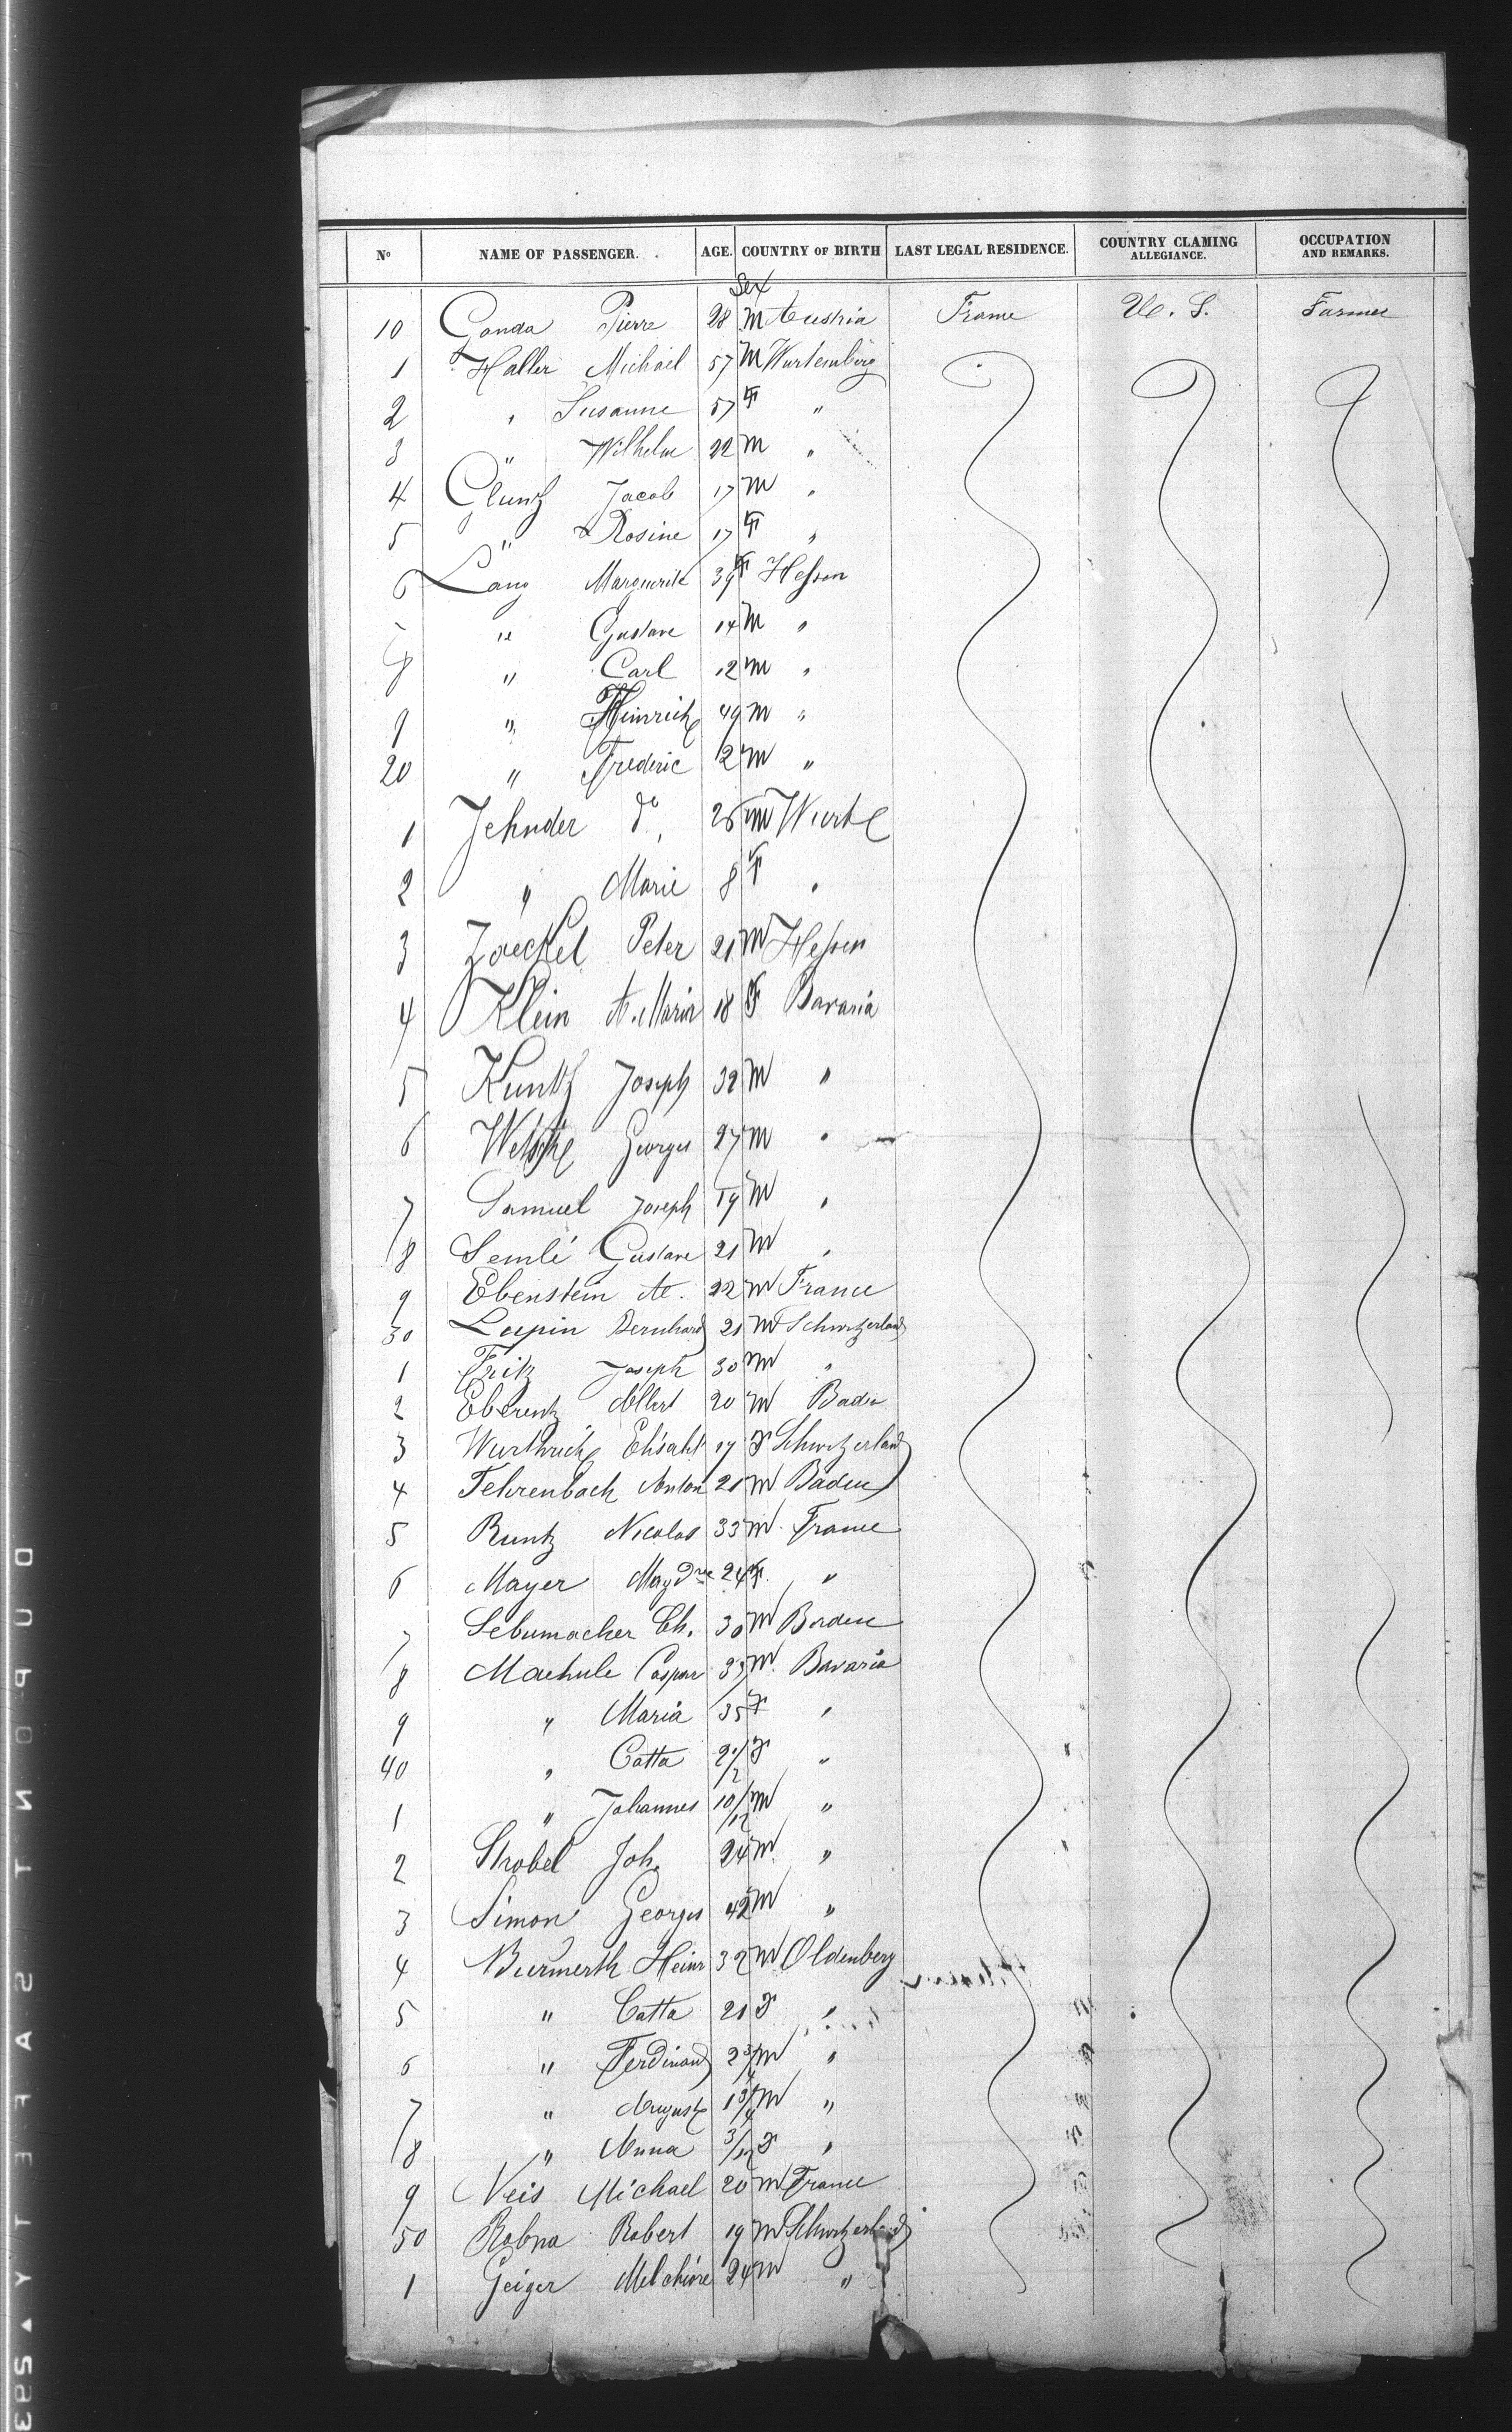 No NAME OF PASSENGER. AGE. COUNTRY OF BIRTH LAST LEGAL RESIDENCE. COUNTRY CLAMING ALLEGIANCE. OCCUPATION AND REMARKS.
Sex
10 Ganda Pierre 28 M Austria France U. S. Farmer
1 Haller Michael 57 M Wurtemberg
2 " Susanne 57 F "
3 " Wilhelm 22 M "
4 Gluntz Jacob 17 M "
5 " Rosine 17 F "
6 Lang Marguerite 39 F Hessen
7 " Gustave 14 M "
8 " Carl 12 M "
9 " Heinrich 49 M "
20 " Frederic 2 M "
1 Zehnder do 26 M Wurtb
2 " Marie 8 F "
3 Zaeckel Peter 21 M Hessen
4 Klein A. Maria 18 F Bavaria
5 Kuntz Joseph 32 M "
6 Georges 27 M "
7 Samuel Joseph 19 M "
8 Semlé Gustave 21 M "
9 Ebenstein A. 22 M France
30 Lupin Bernhard 21 M Schwitzerland
1 Fritz Joseph 30 M "
2 Eberentz Albert 20 M Baden
3 Wurthrich Elisabt 17 F Schwitzerland
4 Fehrenbach Anton 21 M Baden
5 Runtz Nicolas 33 M France
6 Mayer Magdne 24 F "
7 Schumacher Ch. 30 M Baden
8 Maehule Caspar 35 M Bavaria
9 " Maria 35 F "
40 " Catta 2 1/2 F "
1 " Johannes 10/12 M "
2 Strobel Joh. 24 M "
3 Simon Georges 42 M "
4 Burmerth Heinr 32 M Oldenberg
5 " Catta 21 F "
6 " Ferdinand 2 3/4 M "
7 " August 1 3/4 M "
8 " Anna 3/12 F "
9 Neis Michael 20 M France
50 Robna Robert 19 M Schwitzerland
1 Geiger Melchiore 24 M "
DUPONT SAFETY 395